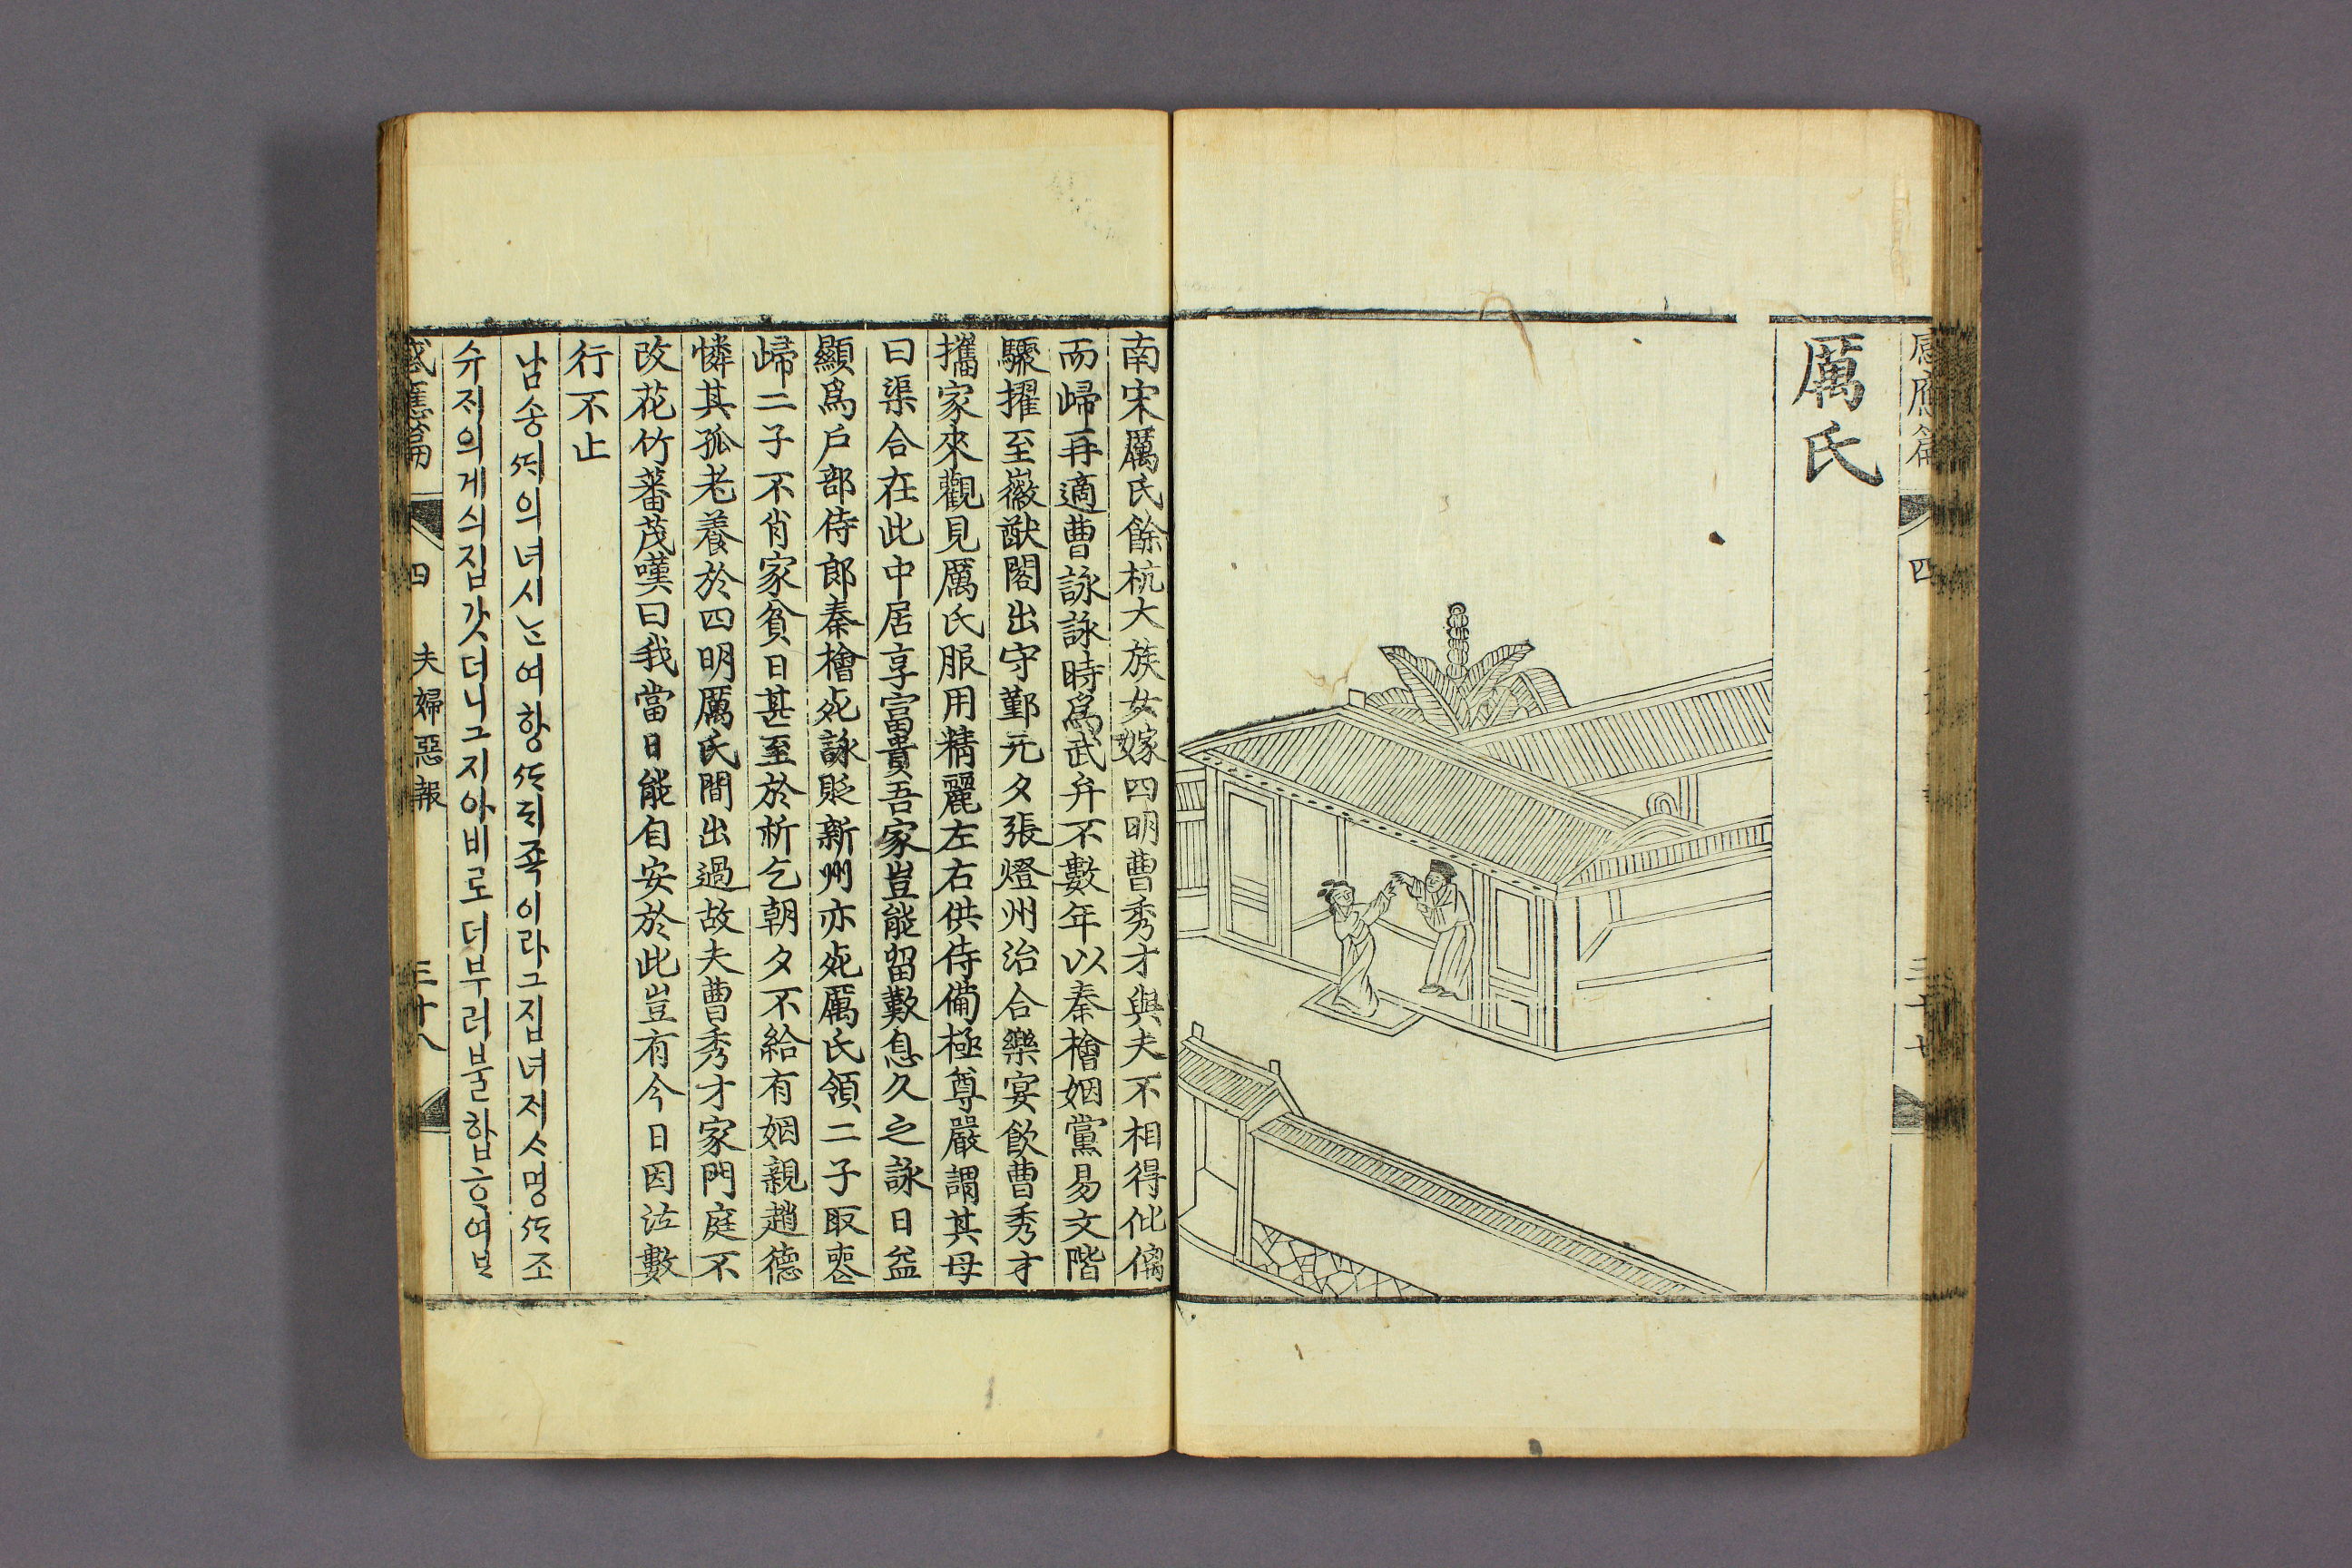 感應篇 四
厲氏
南宋厲氏餘杭大族女嫁四明曹秀才與夫不相得仳㒧
而歸再適曹詠詠時爲武弁不數年以秦檜姻黨易文階
驟擢至徽猷閣出守鄞元夕張燈州治合樂宴飮曹秀才
攜家來觀見厲氏服用精麗左右供侍備極尊嚴謂其母
曰渠合在此中居享富貴吾家豈能留歎息久之詠日益
顯爲戶部侍郎秦檜死詠貶新州亦死厲氏領二子取喪
歸二子不肖家貧日甚至於析乞朝夕不給有姻親趙德
憐其孤老養於四明厲氏間出過故夫曹秀才家門庭不
改花竹蕃茂嘆曰我當日能自安於此豈有今日因泣數
行不止
남송 ᄯᅢ의녀시ᄂᆞᆫ여항 ᄯᅡ
슈ᄌᆡ의게싀집갓더니그지아비로더부러불합ᄒᆞ여
感應篇 四 夫婦惡報 三十八